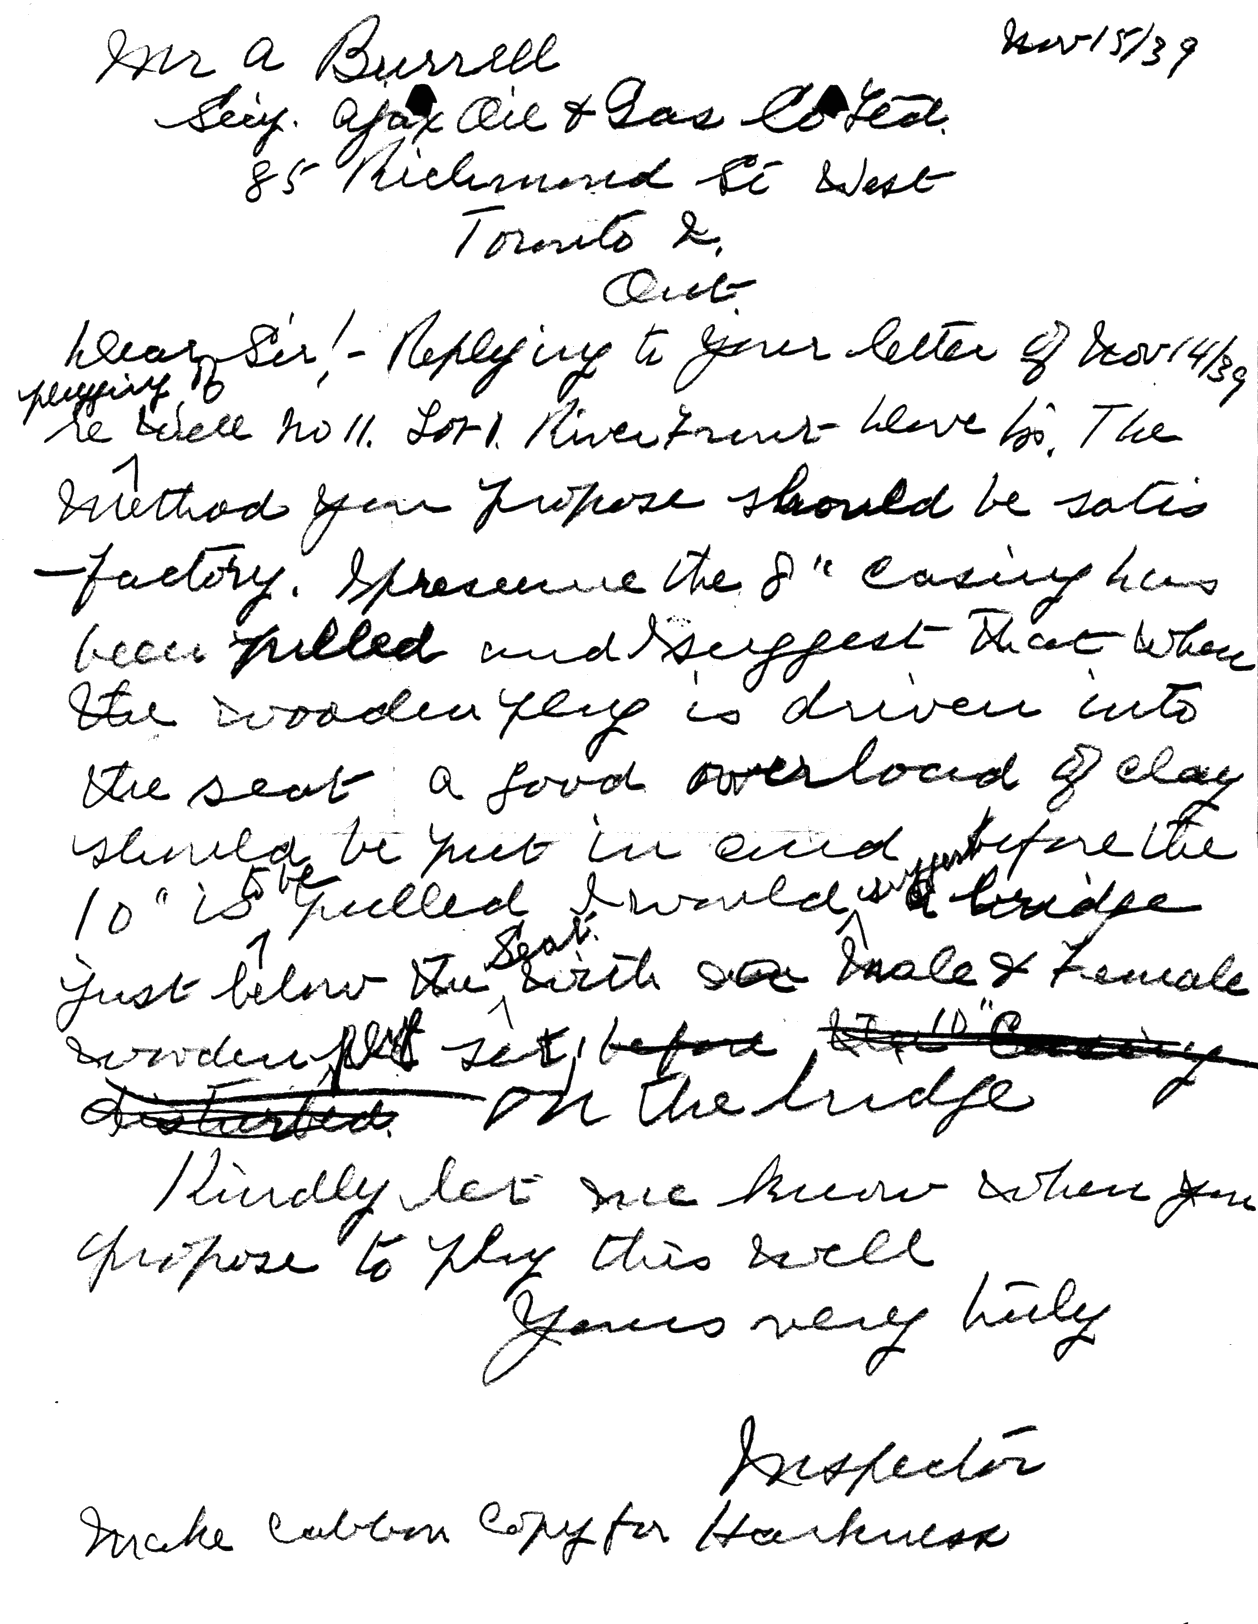 Nov 15/39
Mr A Burrell
Secy. Ajax Oil & Gas Co Ltd.
85 Richmond St West
Toronto 2.
Ont.
Dear Sir! - Replying to your letter of Nov 14/39
plugging of
re Well No 11. Lot 1. River Front
Method you propose should be satis
-factory. I presume the 8" casing has
been pulled and I suggest that when
the wooden plug is driven into
the seat a good overload of clay
should be put in and before the
10" is to be pulled I would suggest a bridge
just below the Seat. with a Male & Female
wooden plug set, before the 10" Casing
disturbed. on the bridge
Kindly let me know when you
propose to plug this well
Yours very truly
Inspector
Make Cabbon Copy for Harkness